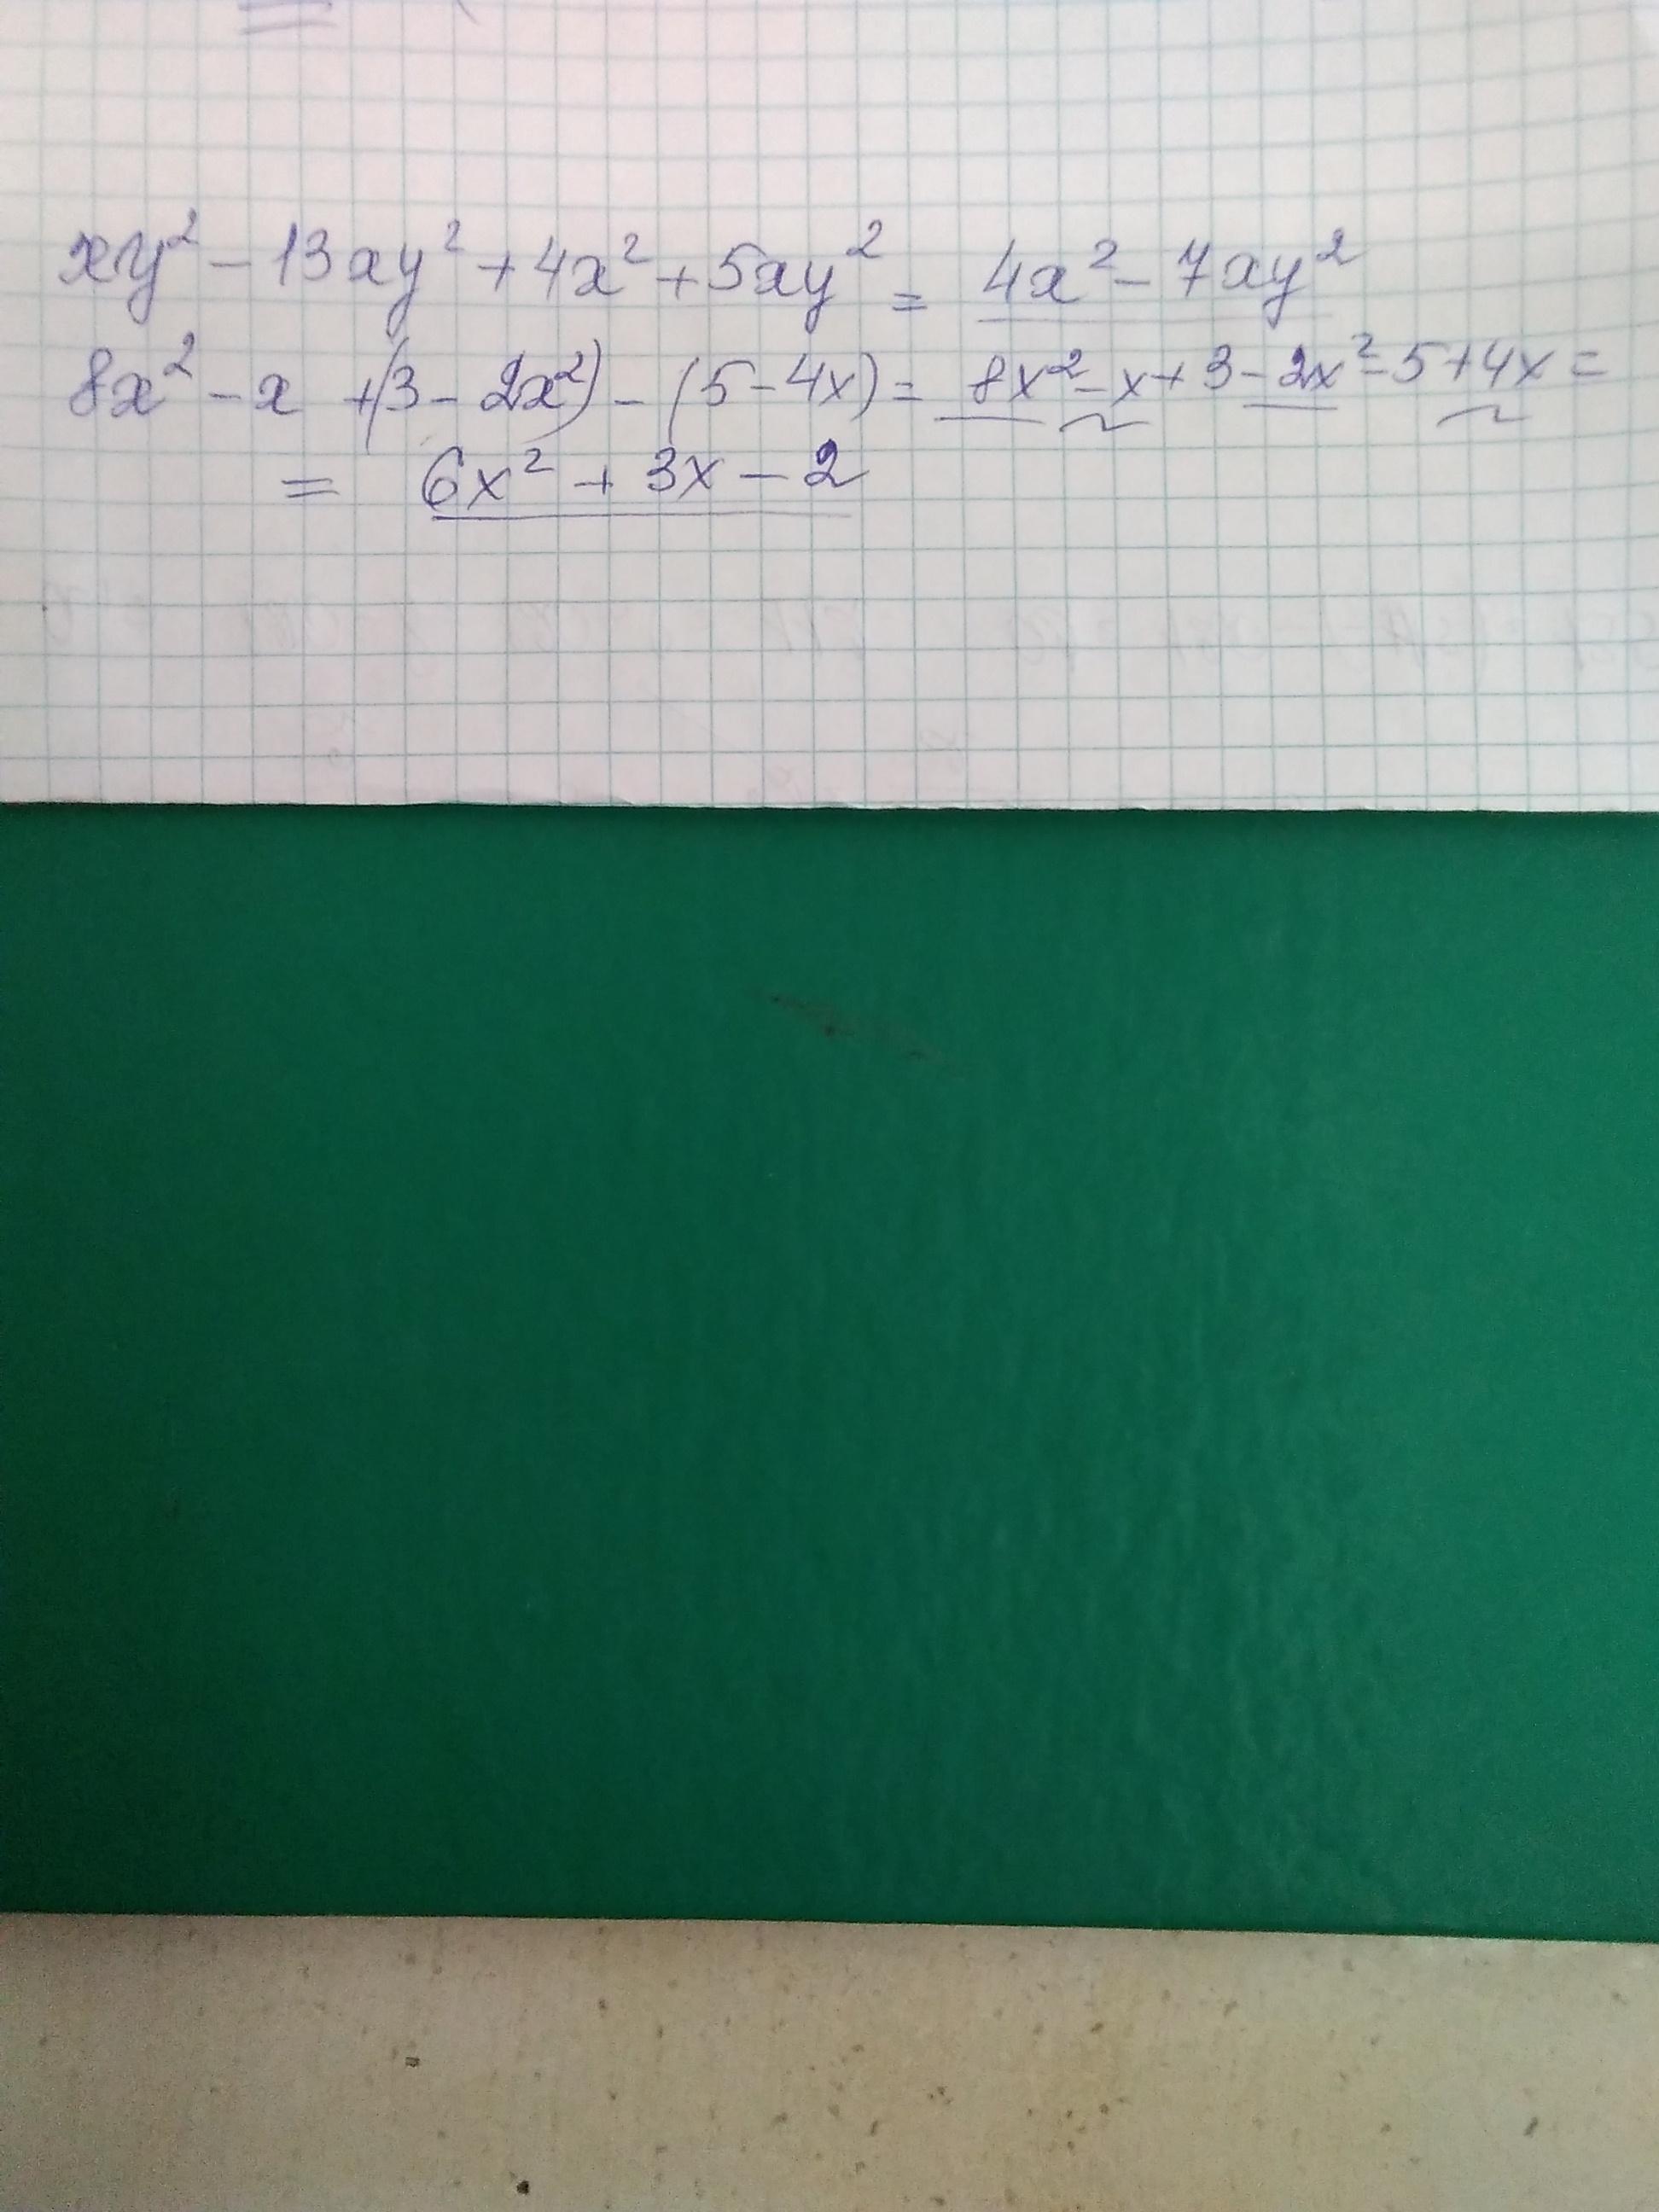 xy² - 13xy² + 4x² + 5xy² = 4x² - 7xy²
8x² - x + (3 - 2x²) - (5 - 4x) = 8x² - x + 3 - 2x² - 5 + 4x =
= 6x² + 3x - 2